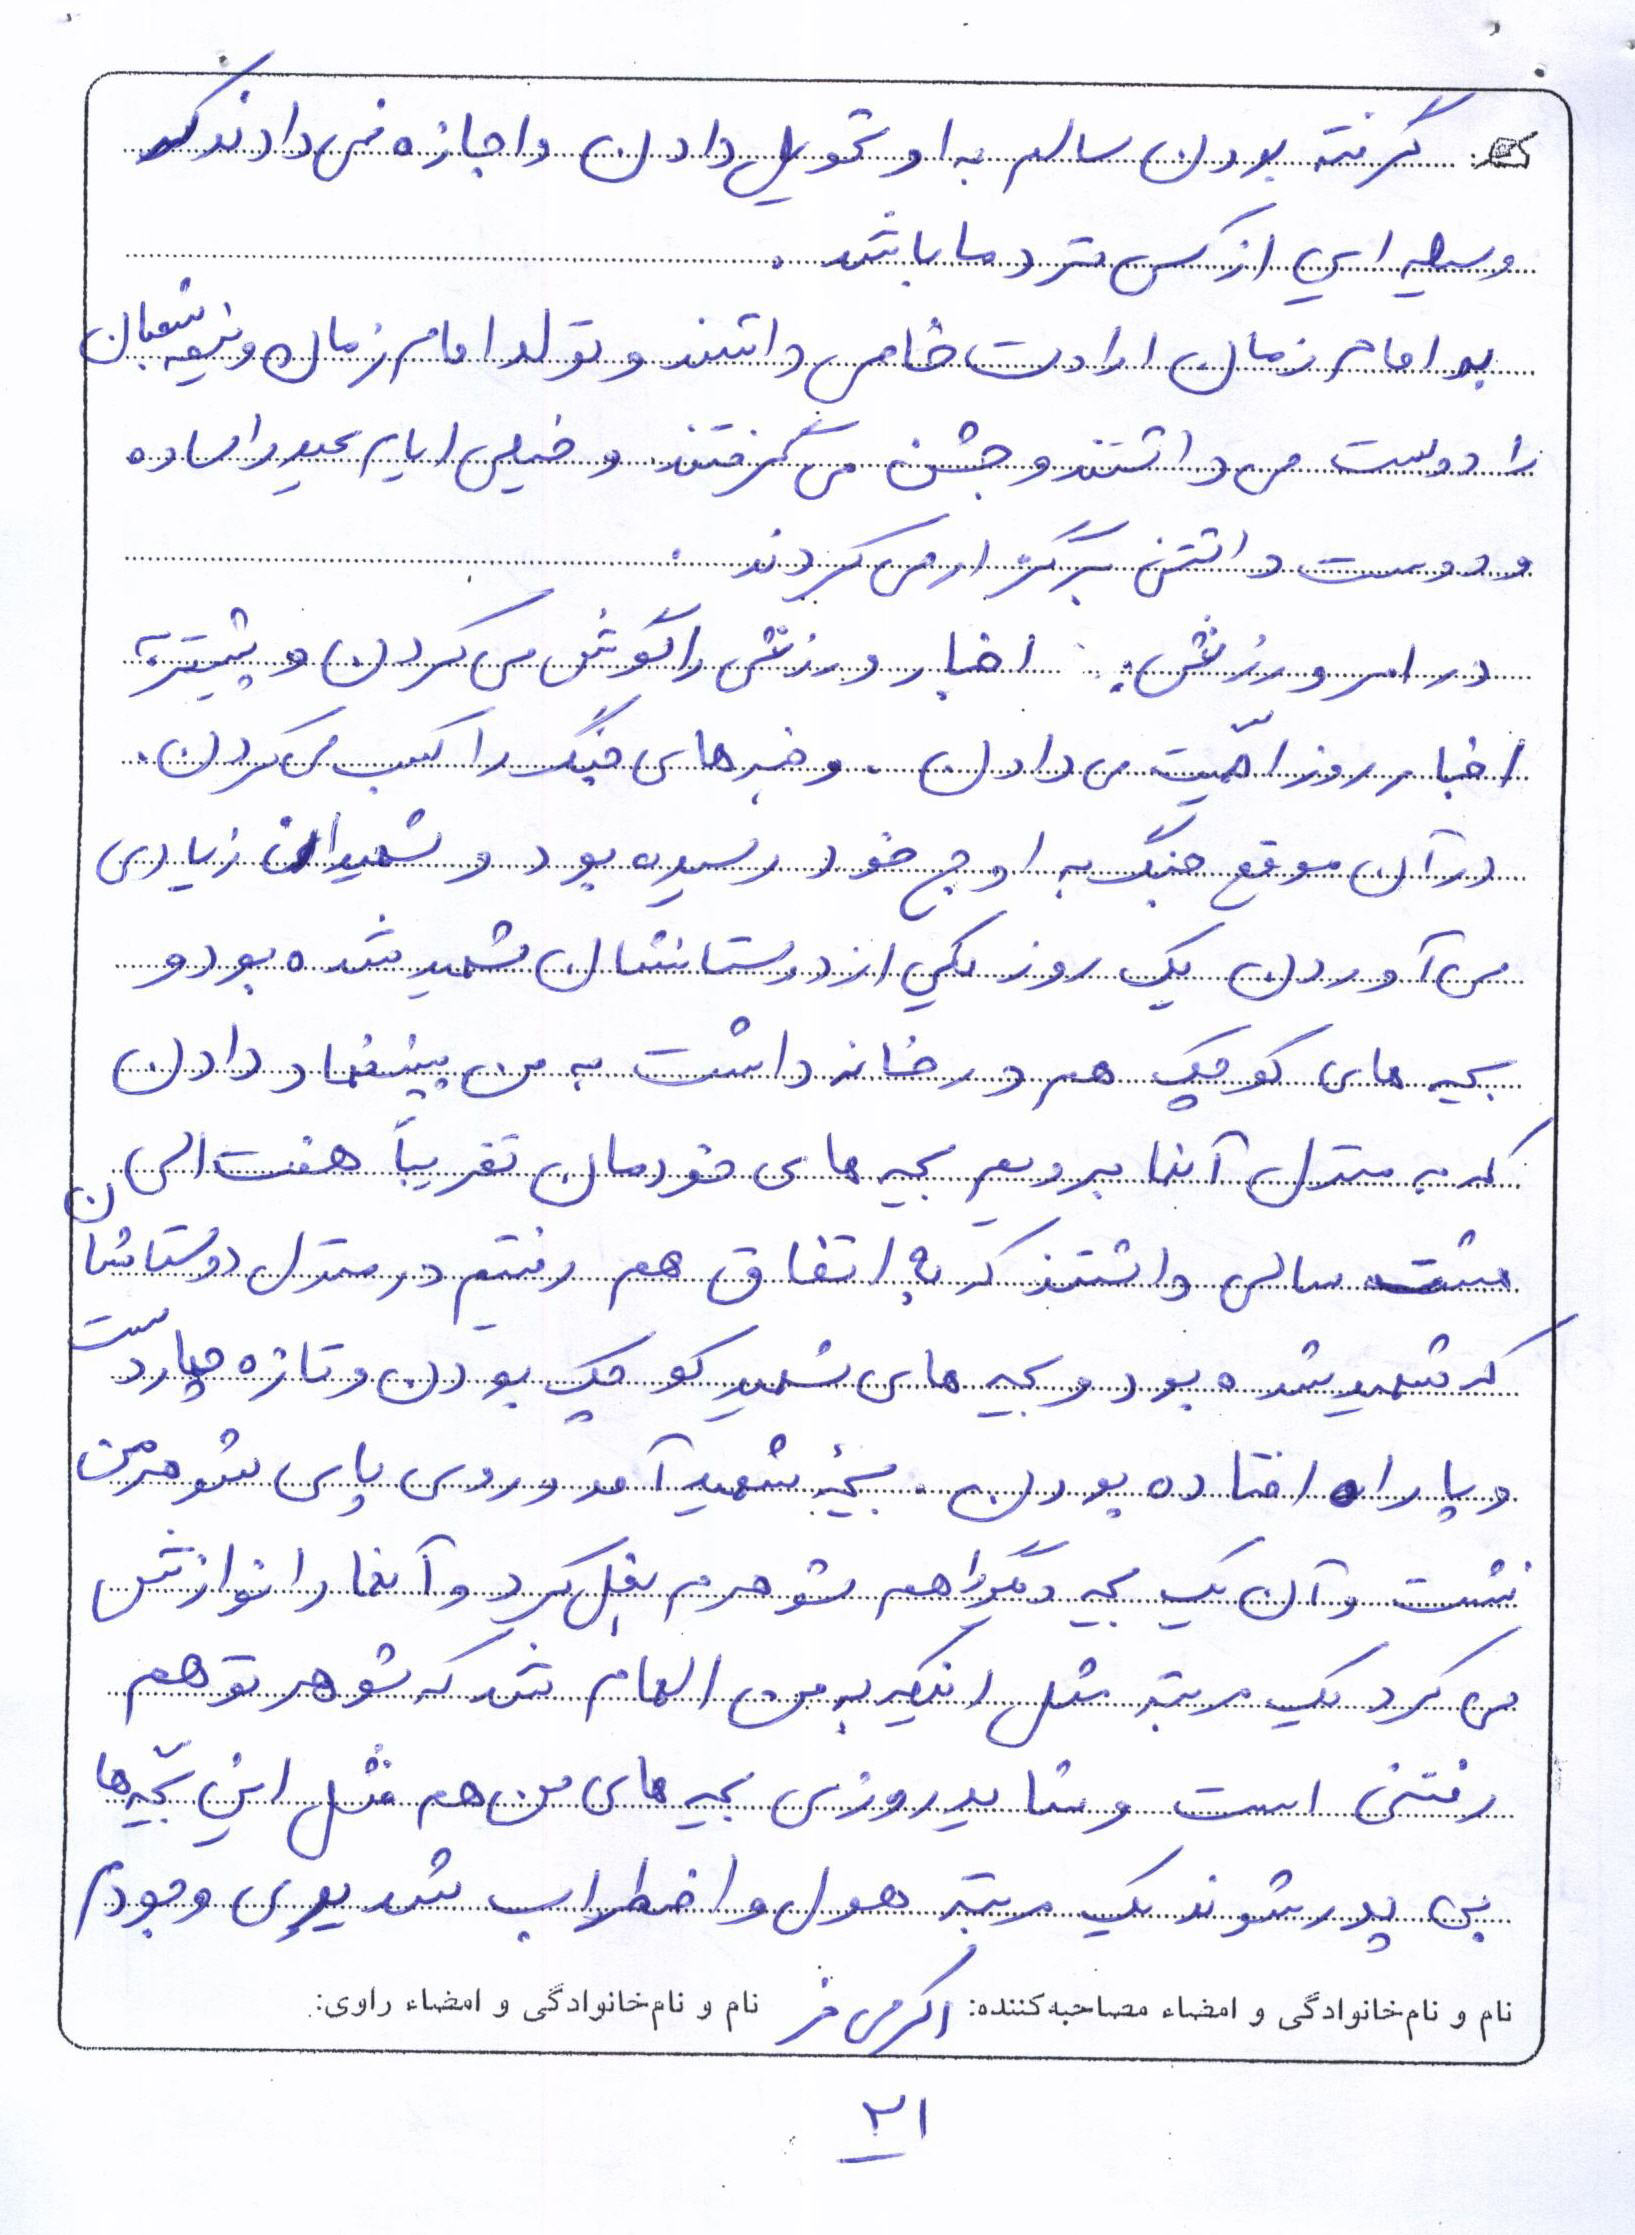 گرفته بودن سالم به او تحویل دادن و اجازه نمی دادند که
وسیله ایی از کسی نزد ما باشد .
به امام زمان ارادت خاصی داشتند و تولد امام زمان و نیمه شعبان
را دوست می داشتند و جشن می گرفتند و خیلی ایام عید را ساده
و دوست داشتنی برگزار می کردند .
در امر ورزش : اخبار ورزشی را گوش می کردن و بیشتر به
اخبار روز اهمّیت می دادن . و خبرهای جنگ را کسب می کردن .
در آن موقع جنگ به اوج خود رسیده بود و شهیدان زیادی
می آوردن یک روز یکی از دوستانشان شهید شده بود و
بچه های کوچک هم در خانه داشت به من پیشنهاد دادن
که به منزل آنها برویم بچه های خودمان تقریباً هفت الی
هشت سالی داشتند که به اتفاق هم رفتیم در منزل دوستانشان
که شهید شده بود و بچه های شهید کوچک بودن و تازه چهار دست
و پا راه افتاده بودن . بچّۀ شهید آمد و روی پای شوهر من
نشست و آن یک بچه دیگر را هم شوهرم بغل کرد و آنها را نوازش
می کرد یک مرتبه مثل اینکه به من الهام شد که شوهر تو هم
رفتنی است و شاید روزی بچه های من هم مثل این بچّه ها
بی پدر شوند یک مرتبه هول و اضطراب شدیدی وجودم
نام و نام خانوادگی و امضاء مصاحبه کننده: اکرمی فر نام و نام خانوادگی و امضاء راوی:
۲۱